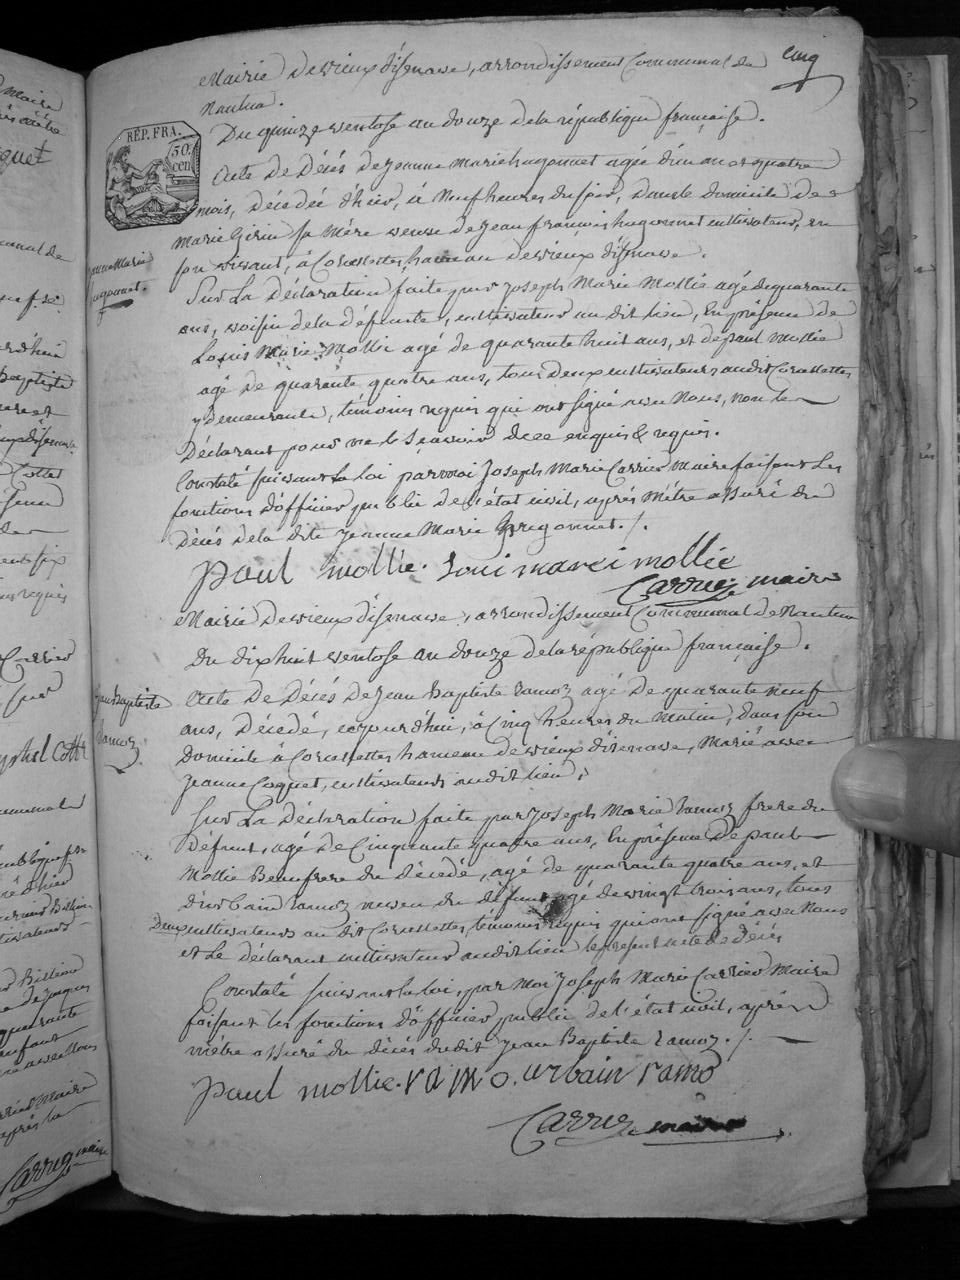 cinq
Mairie de vieux d'isenave, arrondissement Communal de
Nantua.
Du quinze ventose an douze de la république française.
RÉP. FRA.
50.
cen
Acte de Décés de Jeanne Marie hugonnet agée d'un an et quatre
mois, décédée d'hier, à Neuf heures du soir, dans le domicile de
Marie Girin sa Mére veuve de Jean françois hugonnet cultivateur, en
son vivant, à Corcelettes, hameau de vieux d'isenave.
Jeanne Marie
hugonnet.
Sur La Déclaration faite par Joseph Marie Mollie agé de quarante
ans, voisin de la défunte, cultivateur au dit lieu, En présence de
Louis Marie Mollie agé de quarante huit ans, et de paul Mollie
agé de quarante quatre ans, tous deux cultivateurs audit Corcelettes
y demeurants, témoins requis qui ont signé avec Nous, non le
Déclarant pour ne le Scavoir de ce enquis & requis.
Constaté suivant la loi par moi Joseph Marie Carrier Maire faisant les
fonctions d'officier public de l'état civil, après m'étre assuré du
Décés de la dite Jeanne Marie hugonnet./.
paul mollie. Loui marei mollie
Carrier maire
Mairie de vieux d'isenave, arrondissement Communal de Nantua
Du dix huit ventose an douze de la république française.
Jean Baptiste
Ramoz
Acte de Décés de Jean Baptiste Ramoz agé de quarante neuf
ans, Décédé, cejourd'hui, à Cinq heures du Matin, dans son
Domicile à Corcelettes hameau de vieux d'isenave, Marié avec
Jeanne Coquet, cultivateurs audit lieu,
Sur La Déclaration faite par Joseph Marie Ramoz frere du
Défunt, agé de Cinquante quatre ans, En présence de paul
Mollie Beaufrere du décédé, agé de quarante quatre ans, et
d'urbain Ramoz neveu du défunt agé de vingt trois ans, tous
Deux cultivateurs au dit Corcelettes, témoins requis qui ont signé avec Nous
et Le déclarant cultivateur audit lieu le present acte de Décés
Constaté suivant la loi, par Moi Joseph Marie Carrier Maire
faisant les fonctions d'officier public de l'état civil, après
m'étre assuré du décés du dit Jean Baptiste Ramoz./.
paul mollie. ramo. urbain ramo
Carrier maire